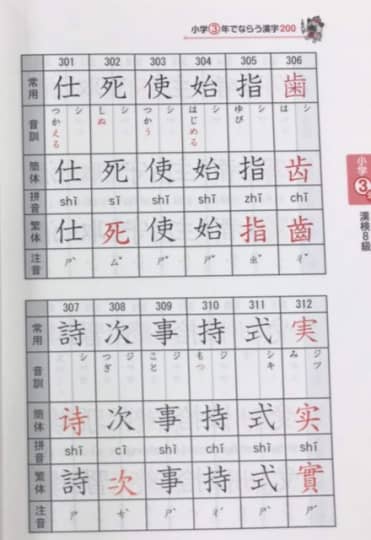 小学③年でならう漢字200
301 302 303 304 305 306
常用 仕 死 使 始 指 歯
音訓 シ つかえる シ しぬ シ つかう シ はじめる シ ゆび シ は
簡体 仕 死 使 始 指 齿
拼音 shì sǐ shǐ shǐ zhǐ chǐ
繁体 仕 死 使 始 指 齒
注音 ㄕˋ ㄙˇ ㄕˇ ㄕˇ ㄓˇ ㄔˇ
307 308 309 310 311 312
常用 詩 次 事 持 式 実
音訓 シ ジ つぎ ジ こと ジ もつ シキ ジツ み
簡体 诗 次 事 持 式 实
拼音 shī cì shì chí shì shí
繁体 詩 次 事 持 式 實
注音 ㄕ ㄘˋ ㄕˋ ㄔˊ ㄕˋ ㄕˊ
小学
③年
漢検8級